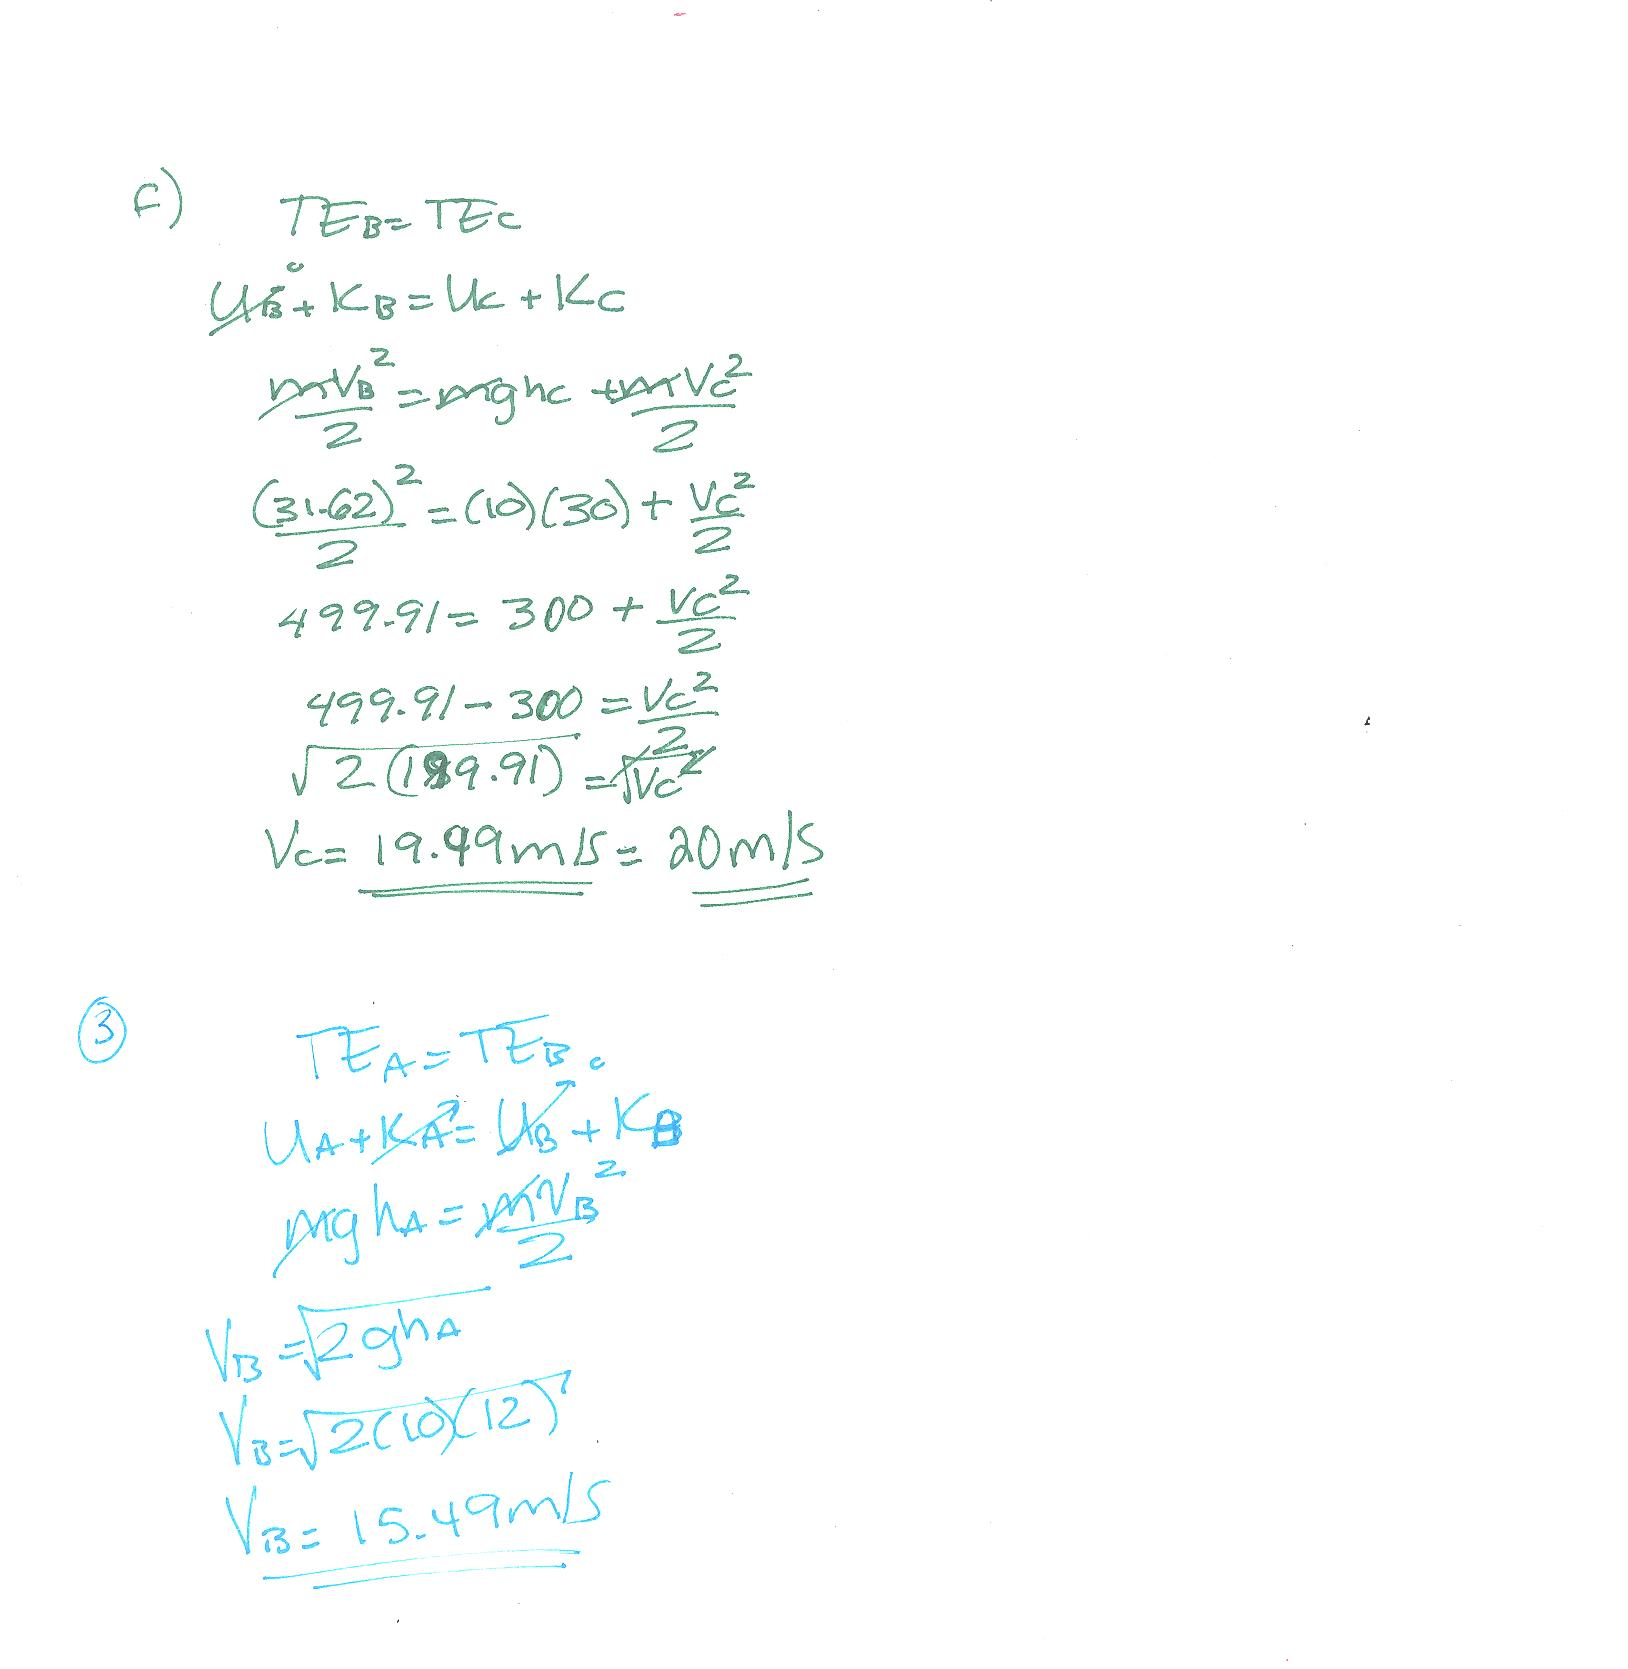 f)
TE_B = TE_C
U_B⁰ + K_B = U_C + K_C
mV_B²/2 = mgh_C + mV_C²/2
(31.62)²/2 = (10)(30) + V_C²/2
499.91 = 300 + V_C²/2
499.91 - 300 = V_C²/2
√2(199.91) = √V_C²
V_C = 19.99 m/s = 20 m/s
3
TE_A = TE_B
U_A + K_A = U_B⁰ + K_B
mgh_A = mV_B²/2
V_B = √2gh_A
V_B = √2(10)(12)
V_B = 15.49 m/s